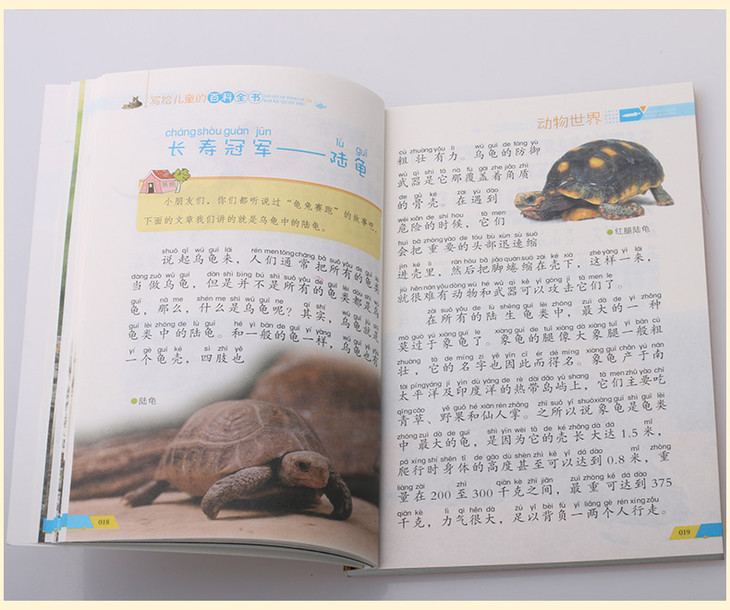 写给儿童的百科全书
cháng shòu guàn jūn lù guī
长寿冠军——陆龟
小朋友们，你们都听说过“龟兔赛跑”的故事吧，
下面的文章我们讲的就是乌龟中的陆龟。
shuō qǐ wū guī lái rén men tōng cháng bǎ suǒ yǒu de guī
说起乌龟来，人们通常把所有的龟类
dàng zuò wū guī dàn shì bìng bú shì suǒ yǒu de guī lèi dōu shì
当做乌龟，但是并不是所有的龟类都是乌
guī nà me shén me shì wū guī ne qí shí wū guī
龟，那么，什么是乌龟呢？其实，乌龟就是
guī lèi zhōng de lù guī hé yì bān de guī yí yàng wū guī yě
龟类中的陆龟。和一般的龟一样，乌龟也有
yí gè guī ké sì zhī yě
一个龟壳，四肢也
陆龟
018
动物世界
cū zhuàng yǒu lì wū guī de fáng yù
粗壮有力。乌龟的防御
wǔ qì shì tā nà fù gài zhe jiǎo zhì
武器是它那覆盖着角质
de gǔ ké zài yù dào
的骨壳。在遇到
wēi xiǎn de shí hou tā men
危险的时候，它们
huì bǎ zhòng yào de tóu bù xùn sù suō
会把重要的头部迅速缩
红腿陆龟
jìn ké lǐ rán hòu bǎ jiǎo quán suō zài ké xià zhè yàng yì lái
进壳里，然后把脚蜷缩在壳下，这样一来，
jiù hěn nán yǒu dòng wù hé wǔ qì kě yǐ gōng jī tā men le
就很难有动物和武器可以攻击它们了。
zài suǒ yǒu de lù shēng guī lèi zhōng zuì dà de yì zhǒng
在所有的陆生龟类中，最大的一种
mò guò yú xiàng guī le xiàng guī de tuǐ xiàng dà xiàng tuǐ yì bān cū
莫过于象龟了。象龟的腿像大象腿一般粗
zhuàng tā de míng zi yě yīn cǐ ér dé míng xiàng guī chǎn yú nán
壮，它的名字也因此而得名。象龟产于南
tài píng yáng jí yìn dù yáng de rè dài dǎo yǔ shang tā men zhǔ yào chī
太平洋及印度洋的热带岛屿上，它们主要吃
qīng cǎo yě guǒ hé xiān rén zhǎng zhī suǒ yǐ shuō xiàng guī shì guī lèi
青草、野果和仙人掌。之所以说象龟是龟类
zhōng zuì dà de guī shì yīn wèi tā de ké cháng dà dá mǐ
中最大的龟，是因为它的壳长大达1.5米，
pá xíng shí shēn tǐ de gāo dù shèn zhì kě yǐ dá dào mǐ zhòng
爬行时身体的高度甚至可以达到0.8米，重
liàng zài zhì qiān kè zhī jiān zuì zhòng kě dá dào
量在200至300千克之间，最重可达到375
qiān kè lì qì hěn dà zú yǐ bēi fù yì liǎng gè rén xíng zǒu
千克，力气很大，足以背负一两个人行走。
019